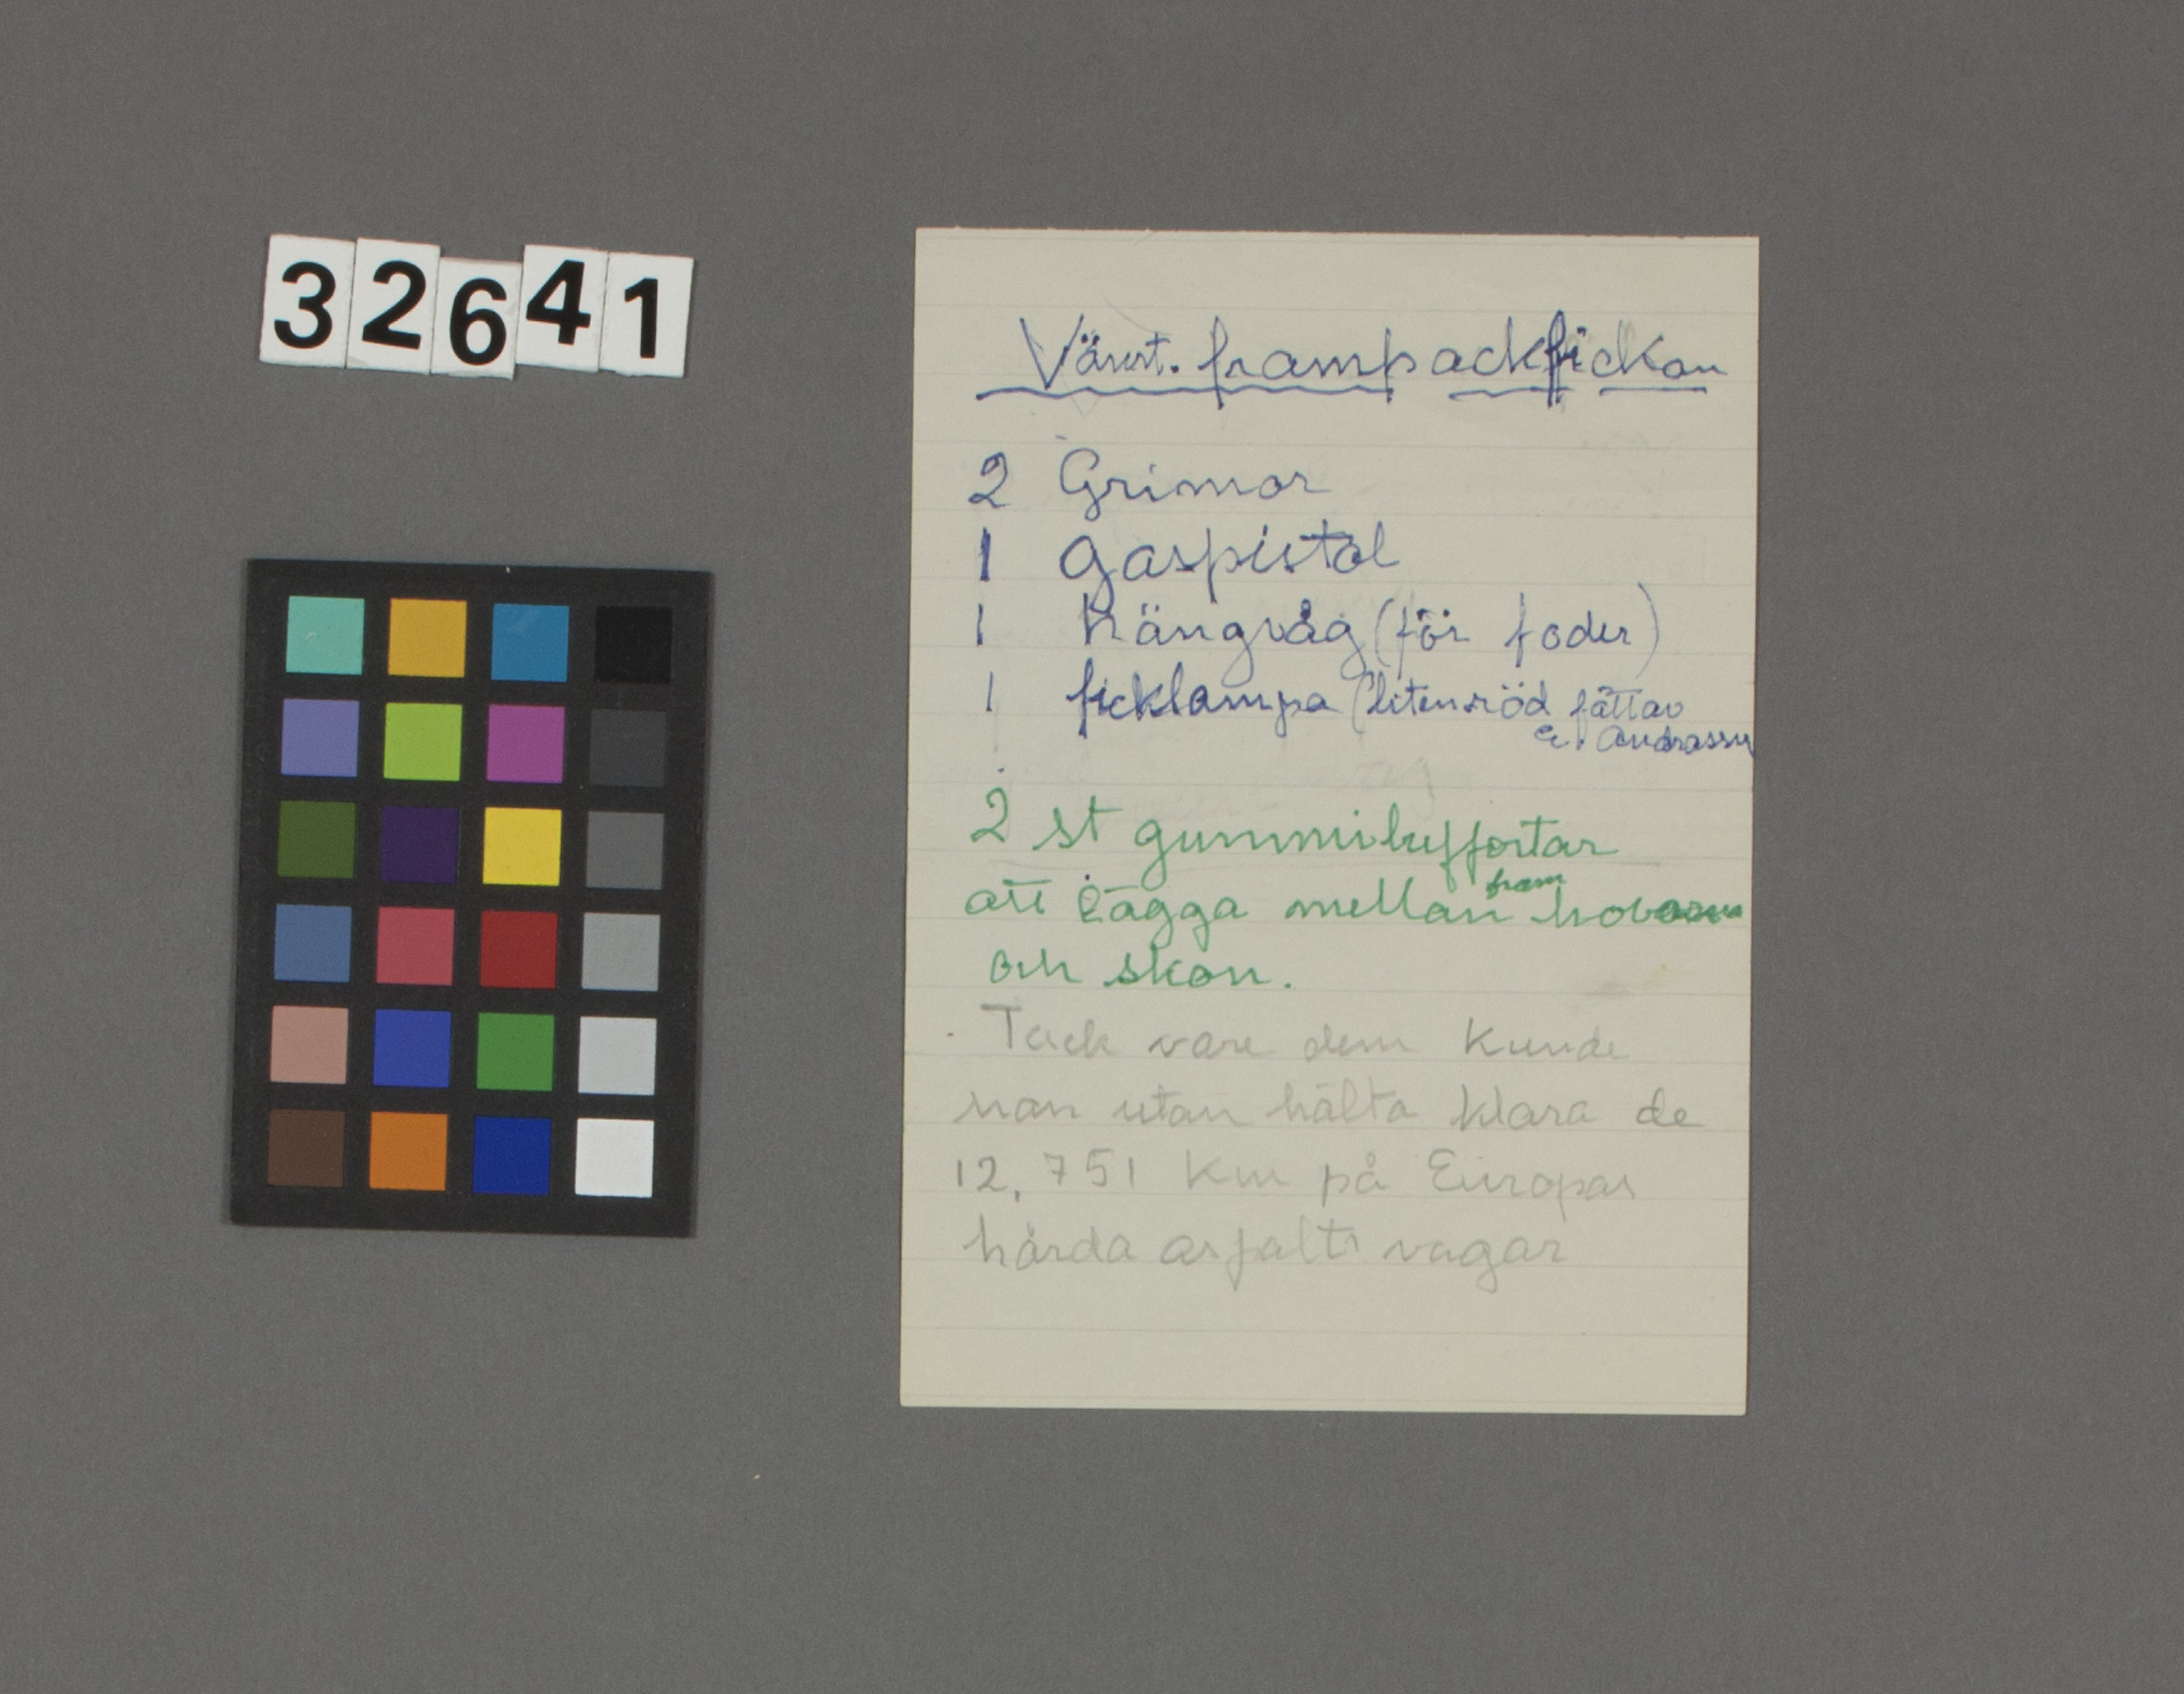 32641
Vänst. frampackfickan
2 Grimor
1 gaspistol
1 hängvåg (för foder)
1 ficklampa (liten röd fått av
2 st gummibuffertar
att lägga mellan fram hovarna
och skon.
Tack vare dem kunde
man utan hälta klara de
12,751 km på Europas
hårda asfalts vägar